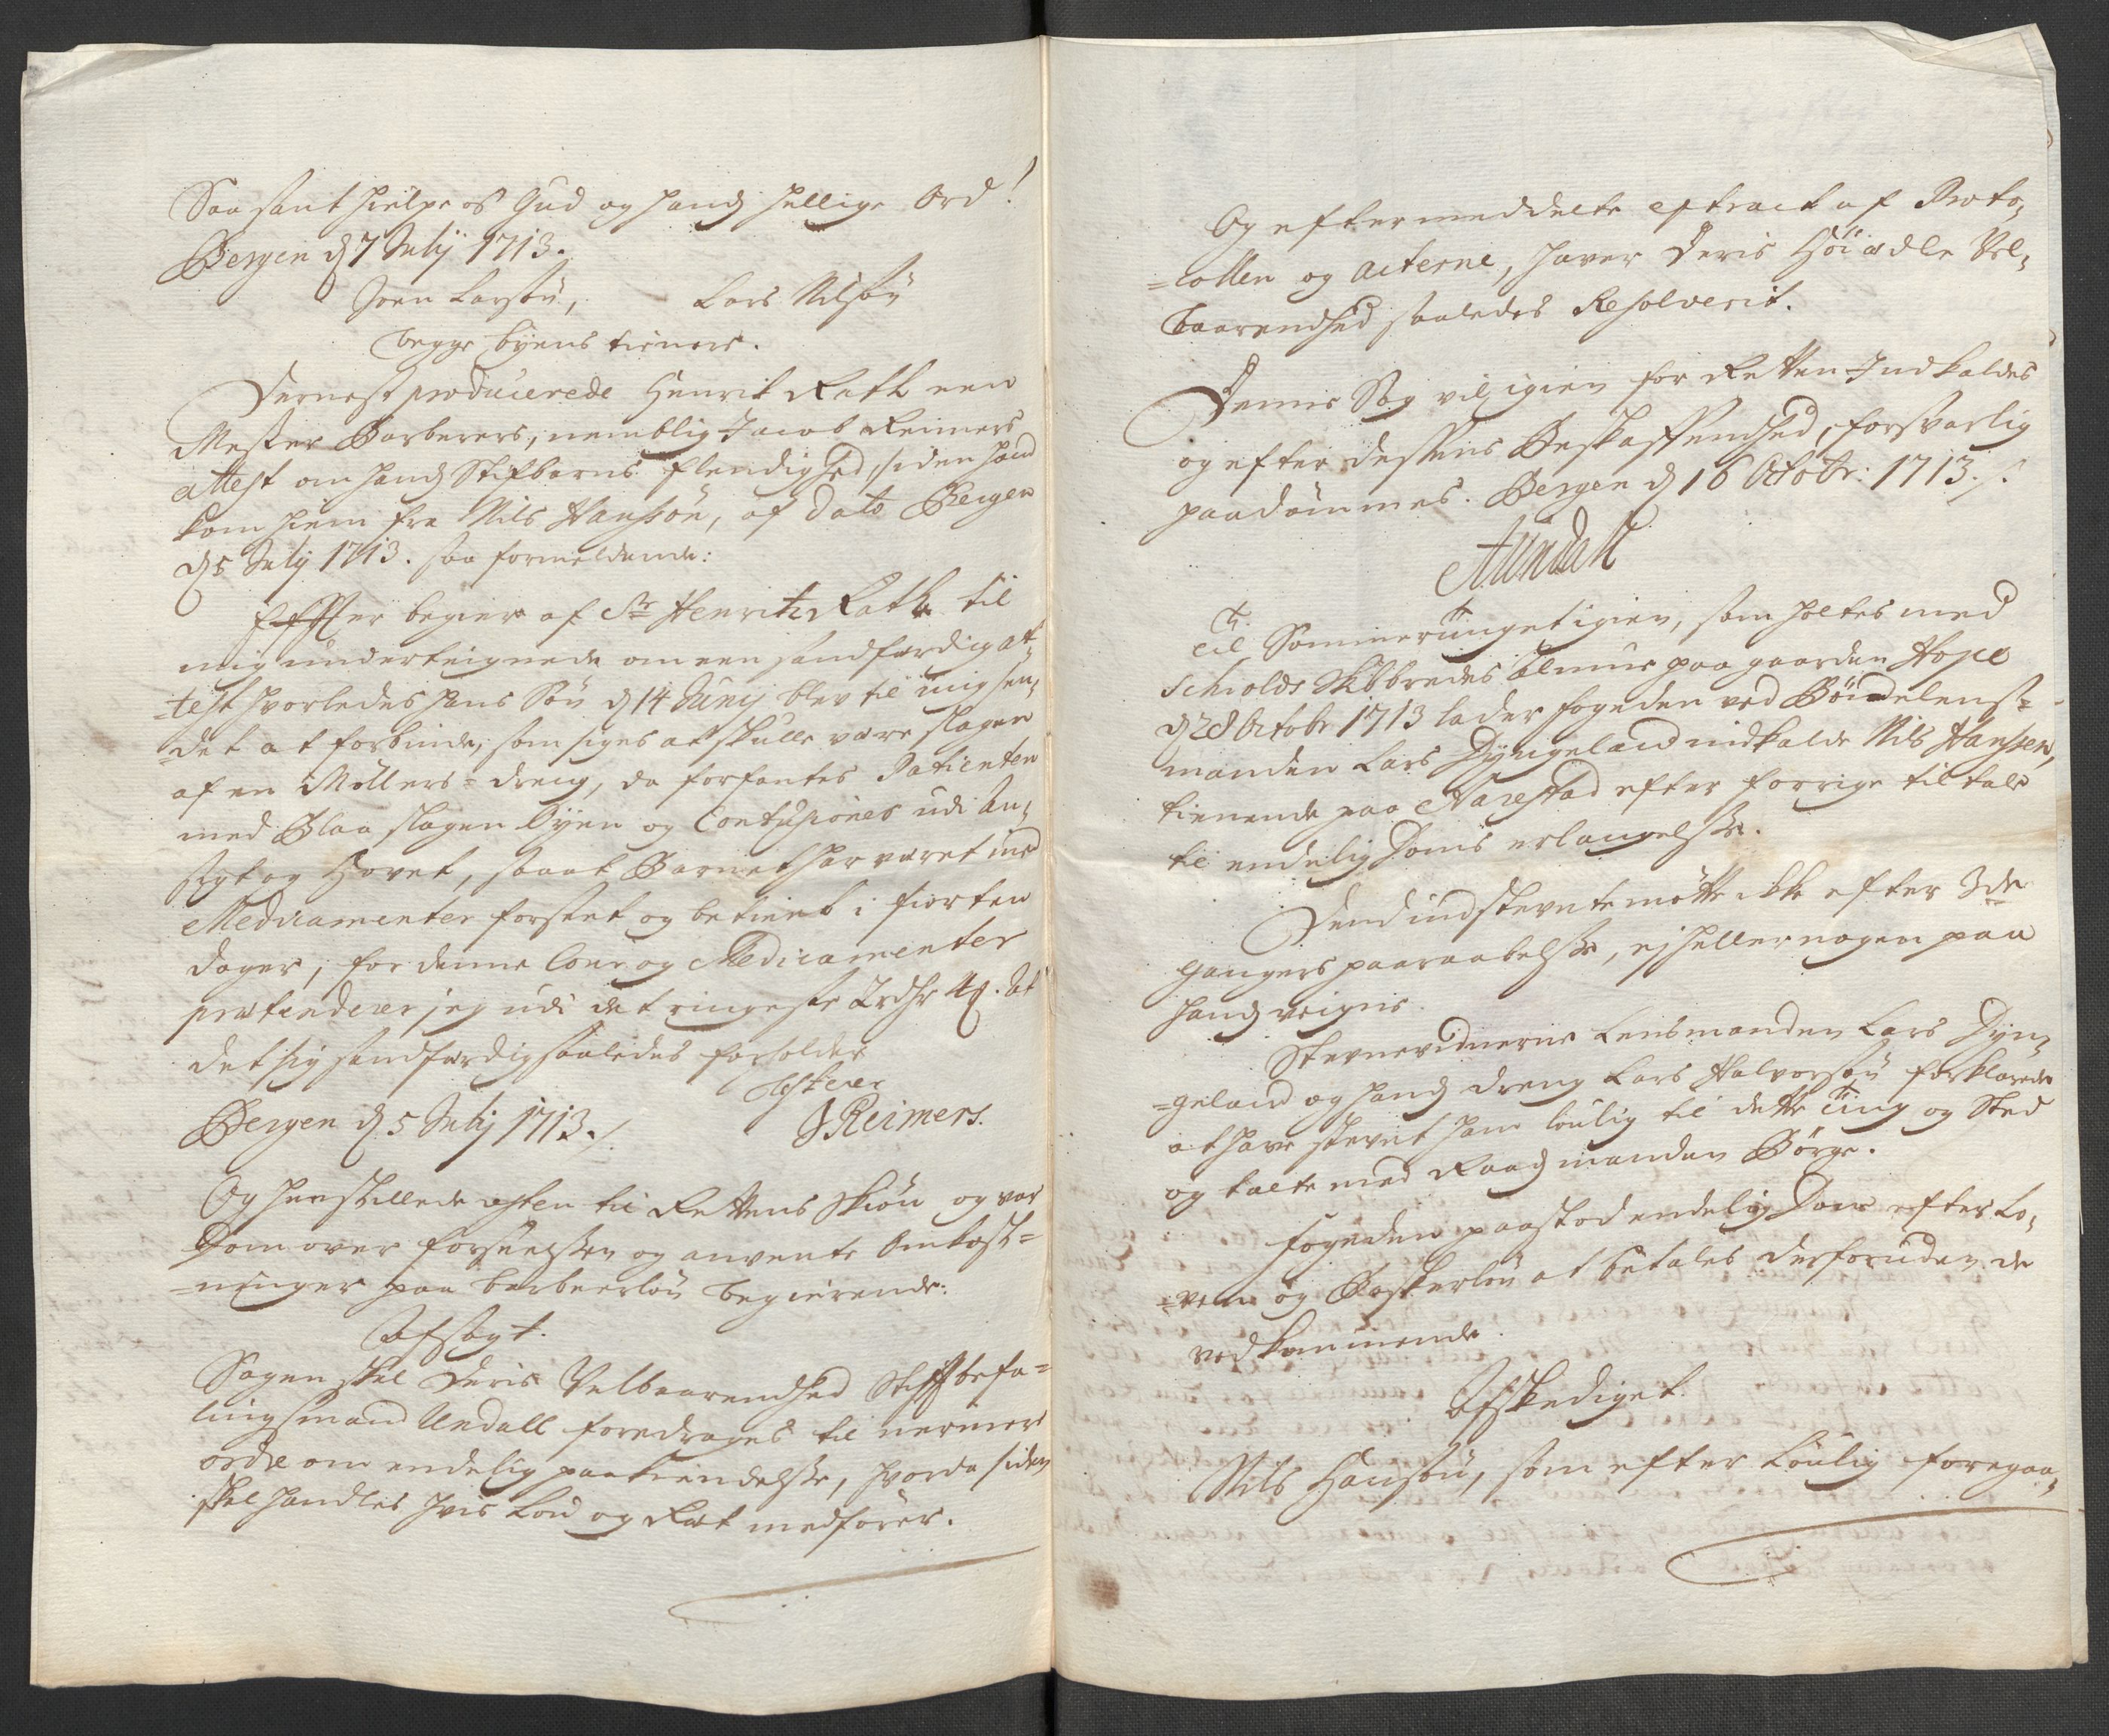 Saa sant hielpe os Gud og hands hellige Ord!
Bergen d 7 July 1713.
Joen Larsøn, Lars Nilsøn
begge byens tienere.
Dernest producerede Henrik Rath een
Mester Barberers, nemblig Jacob Reimers
attest om hands Stifbarns Elendighed, siden hand
kom hiem fra Nils Hansøn, af dato Bergen
d 5 July 1713. saa formeldende:
Effter begier af Sr Henrich Rath til
mig underteignede om een sandfærdig at=
=test hvorledes hans Søn d 14 Junij blev til mig sen=
=det at forbinde, som siges at skulle være slagen
af en Møllers=dreng, da forfantes Patienten
med Blaa slagen Øyen og Contusiones udi An=
sigt og Hovet, saa at Barnet har været med
Medicamenter forsket og betient i fiorten
dager, for denne Cour og Medicamenter
prætenderer jeg udi det ringeste 2 rdlr 4 ß. At
det sig sandfærdig saaledes forholder
Attesterer
Bergen d 5 July 1713. J Reimers.
Og henstillede Acten til Rettens Skiøn og var
Dom over forseelsen og anvente Omkost=
=ninger paa barbeerløn begierende:
Afsagt.
Sagen skal Deris Velbaarenhed Stiftbefa=
lingsmand Undall foredrages til nermere
ordre om endelig paakiendelse, hvorda siden
skal handles hvis Lou og Ræt medfører.
Og efter meddelte extract af Proto=
=collen og acterne, haver Deris Høiædle Vel=
baarenhed saaledes Resolverit.
Denne Sag vil igien for Retten Indkaldes
og efter dessens Beskaffenhed, forsvarlig
paadømmes. Bergen d 16 Octobr: 1713./.
Undall
Til Sommertinget igien, som holtes med
Schiolds Skibbredes Almue paa gaarden Hope
d 28 Octobr 1713 lader fogeden ved Bøndelens=
manden Lars Dyngeland indkalde Nils Hansen,
tienende paa Narestad efter forrige tiltale
til endelig Doms erlangelse.
Dend indstevnte møtte ikke efter 3de
gangers paaraabelse, ej heller nogen paa
hands veigne.
Stevnevidnerne Lensmanden Lars Dyn=
=geland og hands dreng Lars Halvorsøn forklarede
at have stevnt ham loulig til dette ting og Sted
og talte med Raadmanden Børge.
fogeden paastod endelig Dom efter Lo=
=ven og Baskerløn at betales desforuden de
vedkommende.
Afskediget.
Nils Hansøn, som efter Loulig foregaa=